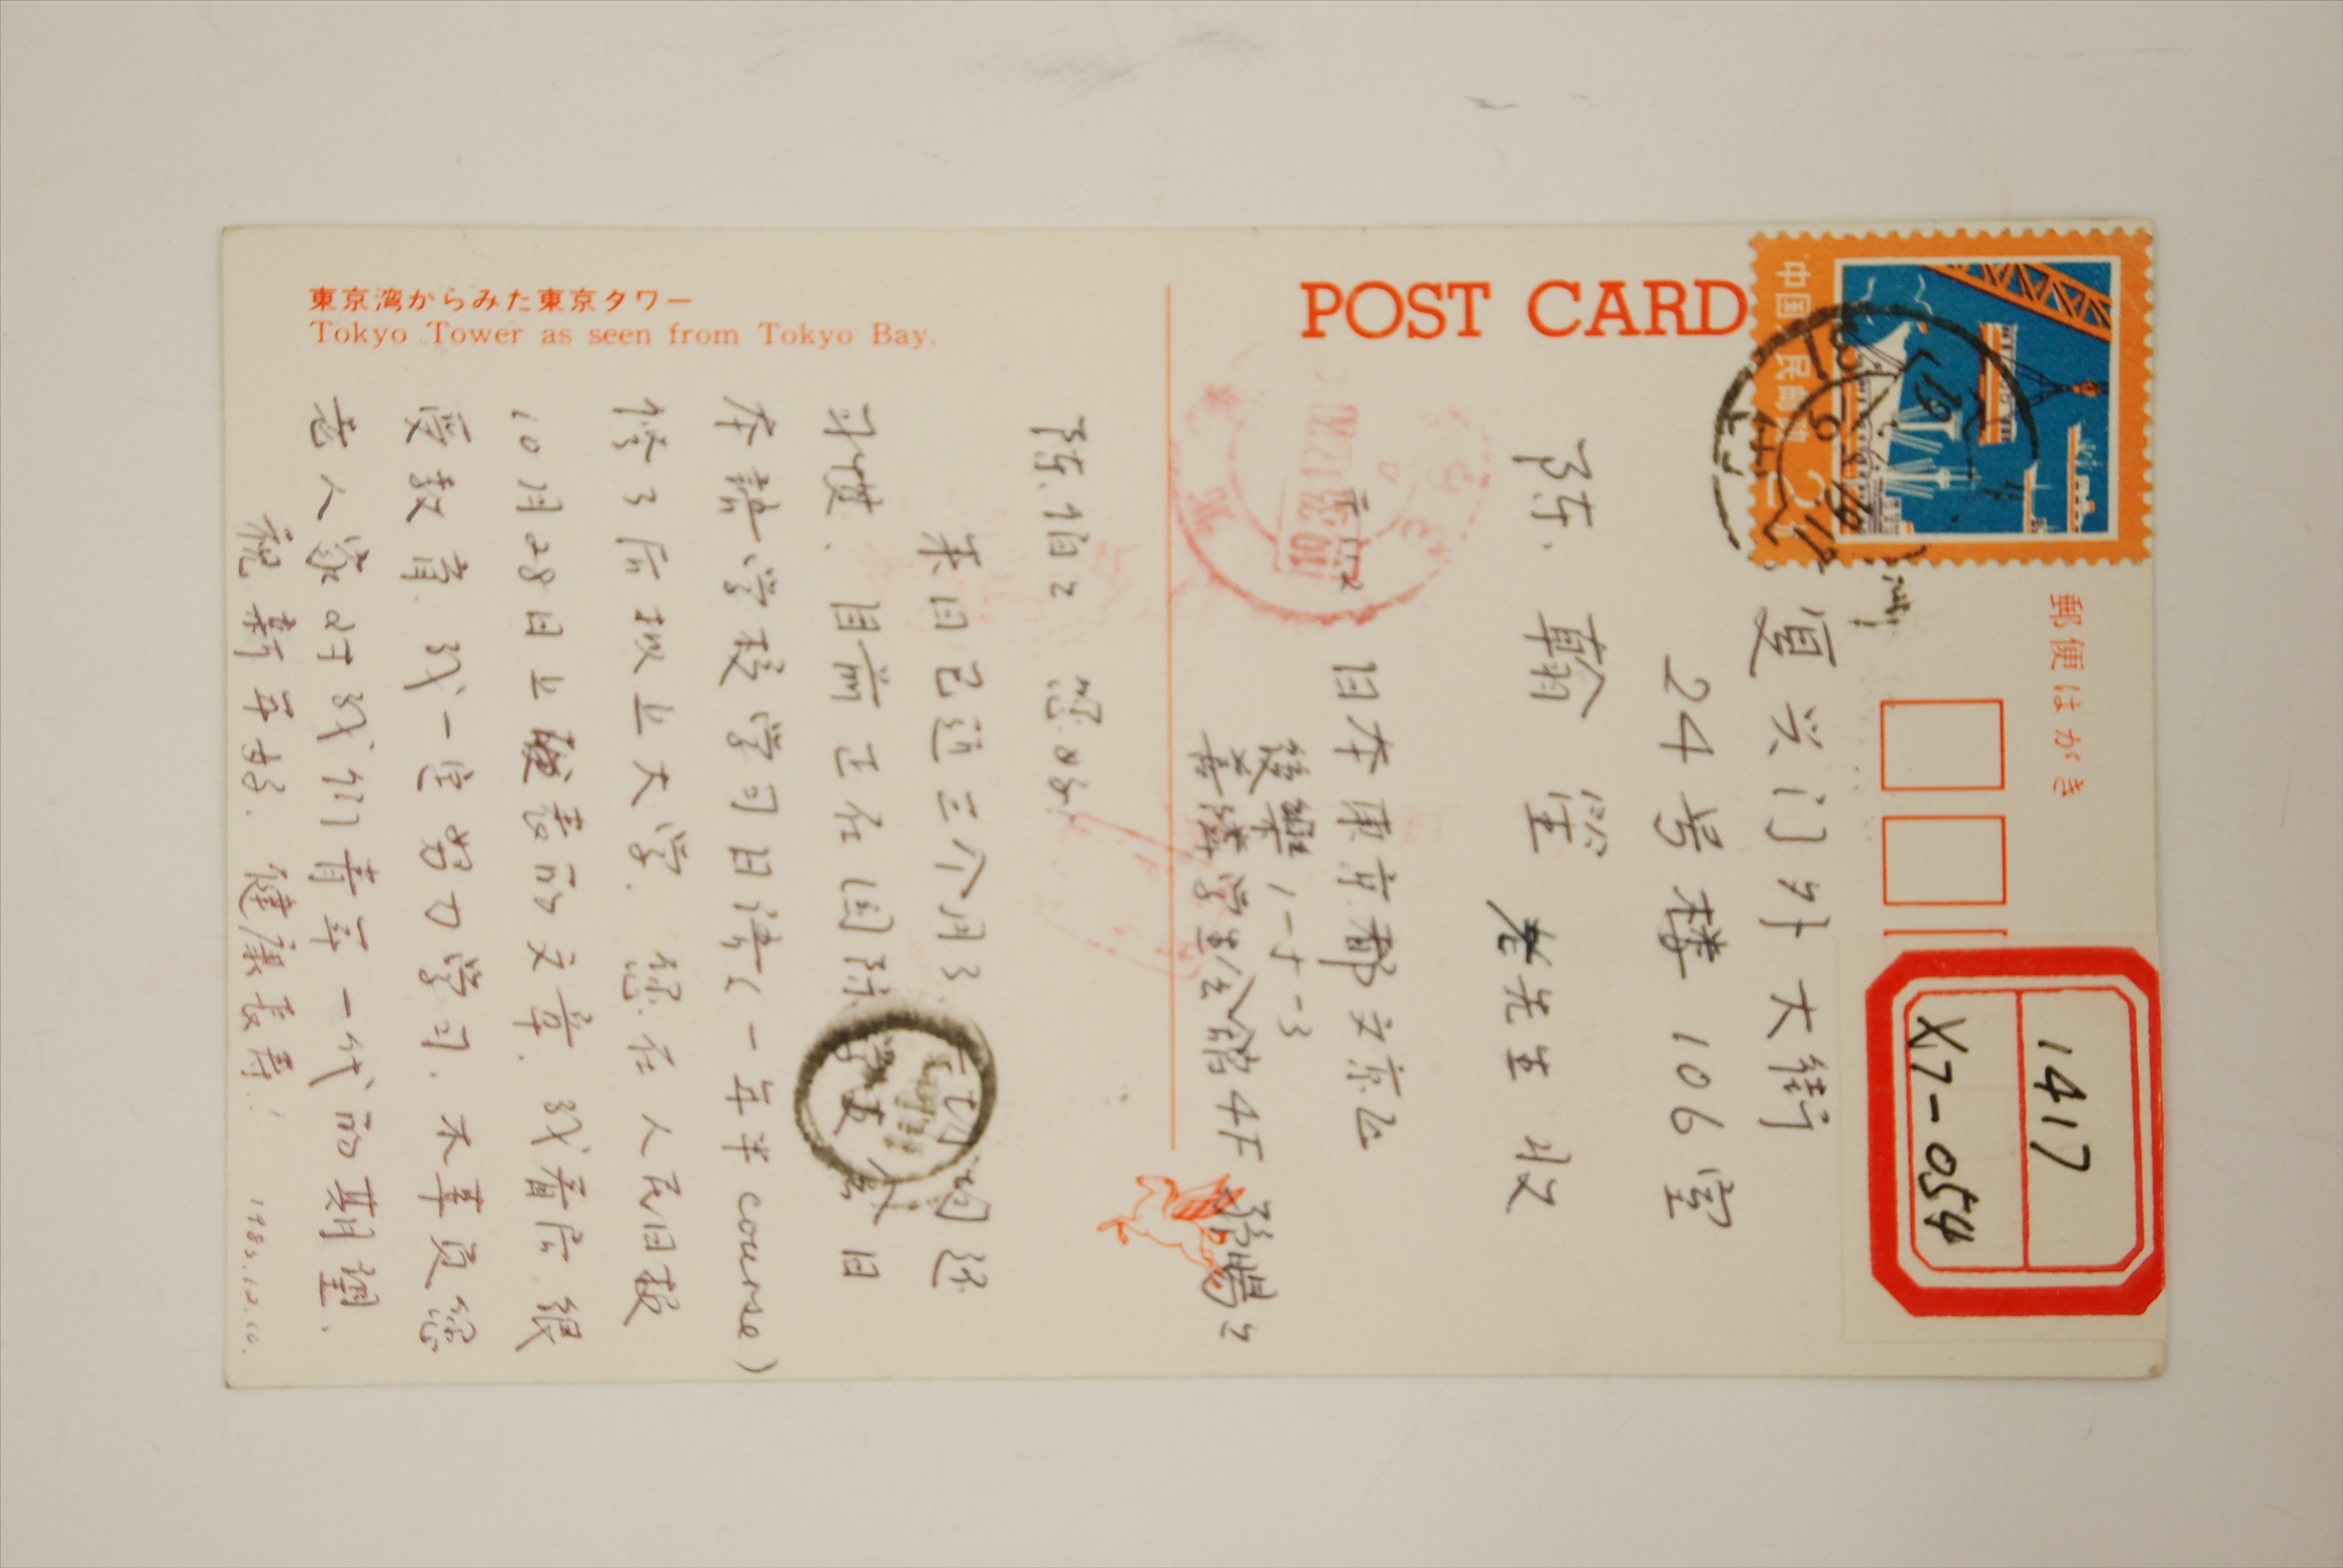 東京湾からみた東京タワー
Tokyo Tower as seen from Tokyo Bay.
POST CARD
郵便はがき
中国人民邮政
1417
X7-054
复兴门外大街
24号楼 106室
陈翰笙 老先生 收
日本東京都文京区
後樂 1-5-3
善隣学生会館 4F
陈伯伯 您好
来日已近三个月了 一切均还
习惯. 目前正在国际学友会日
本語学校学习日語(一年半course)
修了后拟上大学. 您在人民日报
10月28日上发表的文章. 我看后很
受教育. 我一定努力学习. 不辜负您
老人家对我们青年一代的期望.
祝新年好. 健康長寿!
1983.12.10.